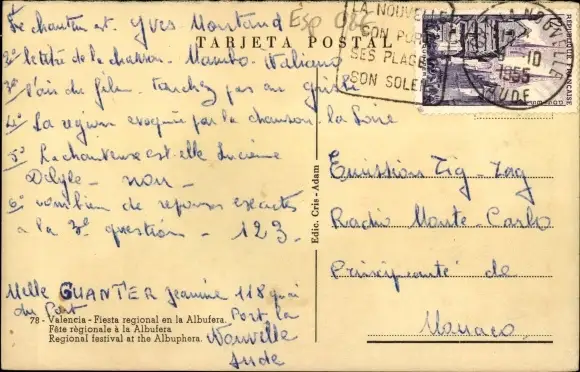 Le chanteur est Yves Montand
Esp 086
TARJETA POSTAL
2º le titre de la chanson - Mambo Italiano
3º l'air du film. touchez pas au grisbi
4º La region evoquée par la chanson. la Loire
5º La chanteuse est elle Lucienne
Delyle - non -
6º combien de reponses exactes
a la 3º question - 123.
Melle GUANTER Jeanine 118 quai
du Port
Port la
Nouvelle
Aude
78 - Valencia - Fiesta regional en la Albufera.
Fête règionale à la Albufera
Regional festival at the Albuphera.
Edic. Cris-Adam
LA NOUVELLE
SON POR
SES PLAGE
SON SOLE
NOUVELLE
10
1955
AUDE
REPUBLIQUE FRANÇAISE
Emission Zig-Zag
Radio Monte-Carlo
Principauté de
Monaco